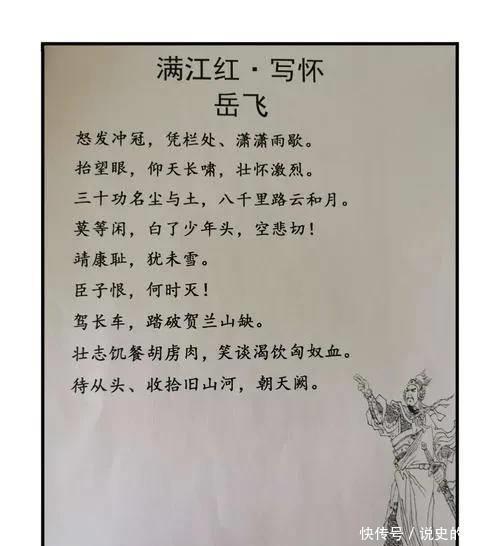 满江红·写怀
岳飞
怒发冲冠，凭栏处、潇潇雨歇。
抬望眼，仰天长啸，壮怀激烈。
三十功名尘与土，八千里路云和月。
莫等闲，白了少年头，空悲切！
靖康耻，犹未雪。
臣子恨，何时灭！
驾长车，踏破贺兰山缺。
壮志饥餐胡虏肉，笑谈渴饮匈奴血。
待从头、收拾旧山河，朝天阙。
快传号／说史的